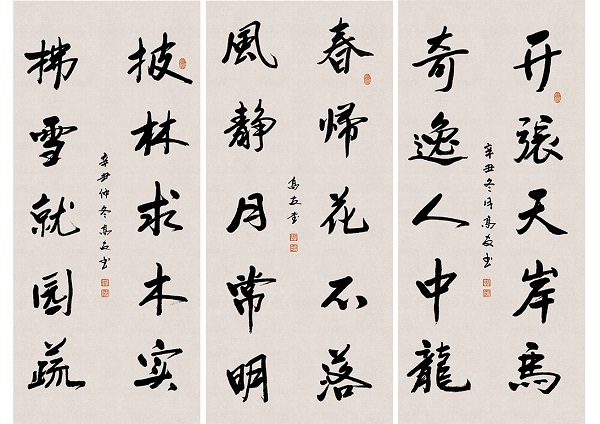 开張天岸馬
奇逸人中龍
辛丑冬月高友书
春帰花不落
風静月常明
高友書
披林求木实
拂雪就园蔬
辛丑仲冬高友书